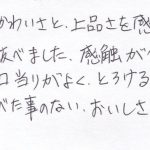 かわいさと、上品さを感
抜べました、感触が
口当りがよく、とろける
べた事のない、おいしさ